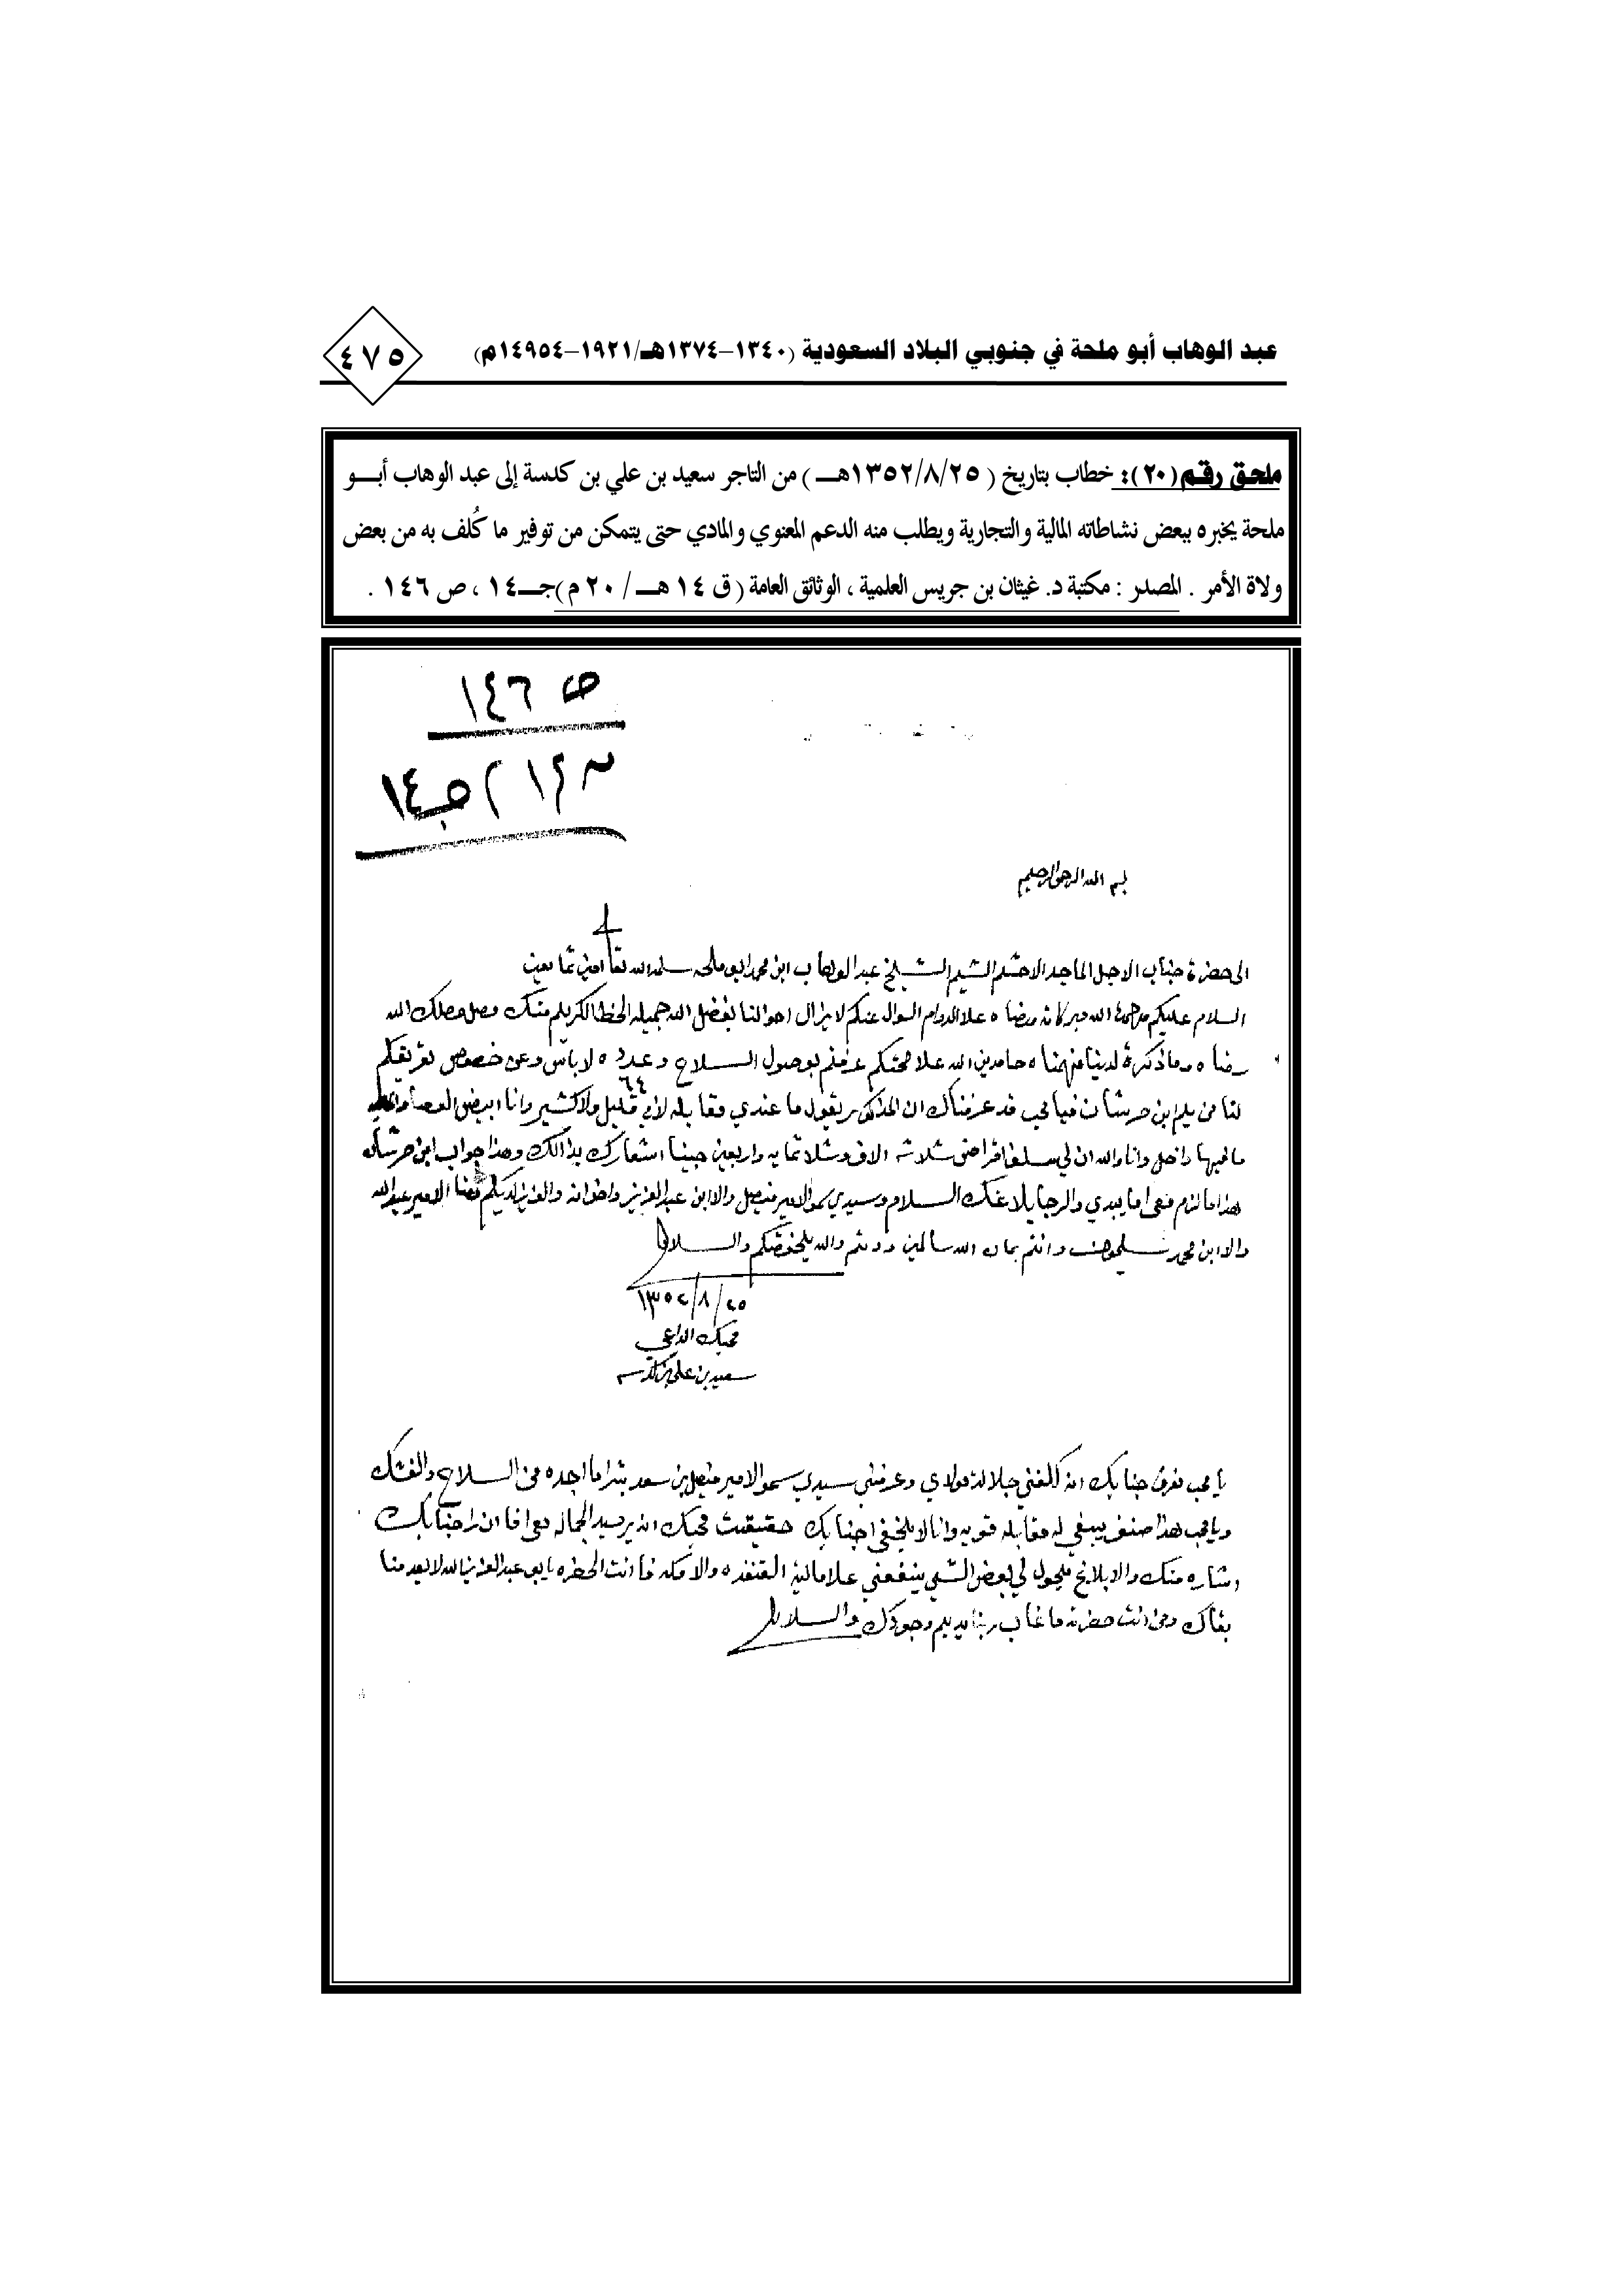 عبد الوهاب أبو ملحة في جنوبي البلاد السعودية (١٣٤٠-١٣٧٤هـ/١٩٢١-١٤٩٥٤م)
٤٧٥
ملحق رقم (٢٠): خطاب بتاريخ (١٣٥٢/٨/٢٥هـ) من التاجر سعيد بن علي بن كدسة إلى عبد الوهاب أبو
ملحة يخبره ببعض نشاطاته المالية والتجارية ويطلب منه الدعم المعنوي والمادي حتى يتمكن من توفير ما كُلف به من بعض
ولاة الأمر . المصدر : مكتبة د. غيثان بن جريس العلمية ، الوثائق العامة ( ق ١٤ هـ / ٢٠ م ) جـ١٤ ، ص ١٤٦ .
ص ١٤٦
جـ١٤
بسم الله الرحمن الرحيم
الى حضرة جناب الاجل الماجد الاحشم الشيم الشيخ عبد الوهاب ابن محمد ابو ملحه سلمه الله تعا امين
السلام عليكم ورحمة الله وبركاته على الدوام السوال عنكم لا يزال احوالنا بفضل الله جميله الخط الكريم منك وصل وصلك الله
رضاه وما ذكرة لدينا فهمناه حامدين الله علا صحتكم عرفتم بوصول السلاح وعدده ٦٤ لا باس وعن خصوص تعريفكم
لنا من يم ابن حرشان فيا محب قد عرفناك ان المذكور يقول ما عندي مقابله لا قليل ولا كثير وانا ابيض العصا
ما فيها داخل وانا والله ان لي سلفا ثلاثه الاف وثلاثمايه واربعين جنيها اشعارك بذالك وهذا جواب ابن حرشان
هذا ما لزم مع اما يبدي والرجا بلاغك السلام وسيدي سمو الامير فيصل والابن عبد العزيز واخوانه الامير عبد الله
والابن محمد يسلمون وانتم بمان الله سالمين ودمتم والله يحفظكم والسلام
١٣٥٢/٨/٢٥
محبك الداعي
سعيد بن علي بن كدسه
يا محب نعرف جنابك انه كلفني جلالة مولاي وعرفني سيدي سمو الامير فيصل بن سعد بشرا ما اجده من السلاح والفشك
ويا محب هذا صنف يبغي له مقابله قويه وانا لا يخفى جنابك حقيقت محبك
منك والابلاغ يحول لي بعض الشي ينفعني علا مالية القنفذه والا فانت الحضره يا بو عبد العزيز الله لا يعدمنا
بقاك ومن انت حضرته ما غاب ربنا يديم وجودك والسلام